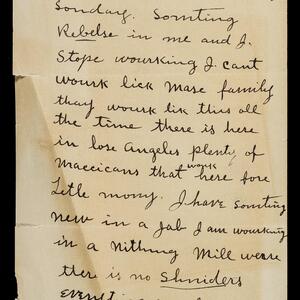 Sonday. Somting
Rebelse in me and I.
Stope wourking I. cant
wourk lick Mase family
thay wourk lik this all
the time there is here
in lose Angeles plenty of
Maccicans that work here fore
Letle mony. I. have somting
new in a Jab I am wourking
in a Nithng Mill were
ther is no Shniders